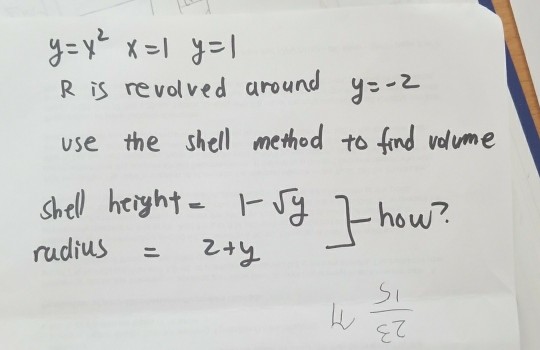 y=x² x=1 y=1
R is revolved around y=-2
use the shell method to find volume
shell height = 1-√y
radius = 2+y
how?
23/15 π